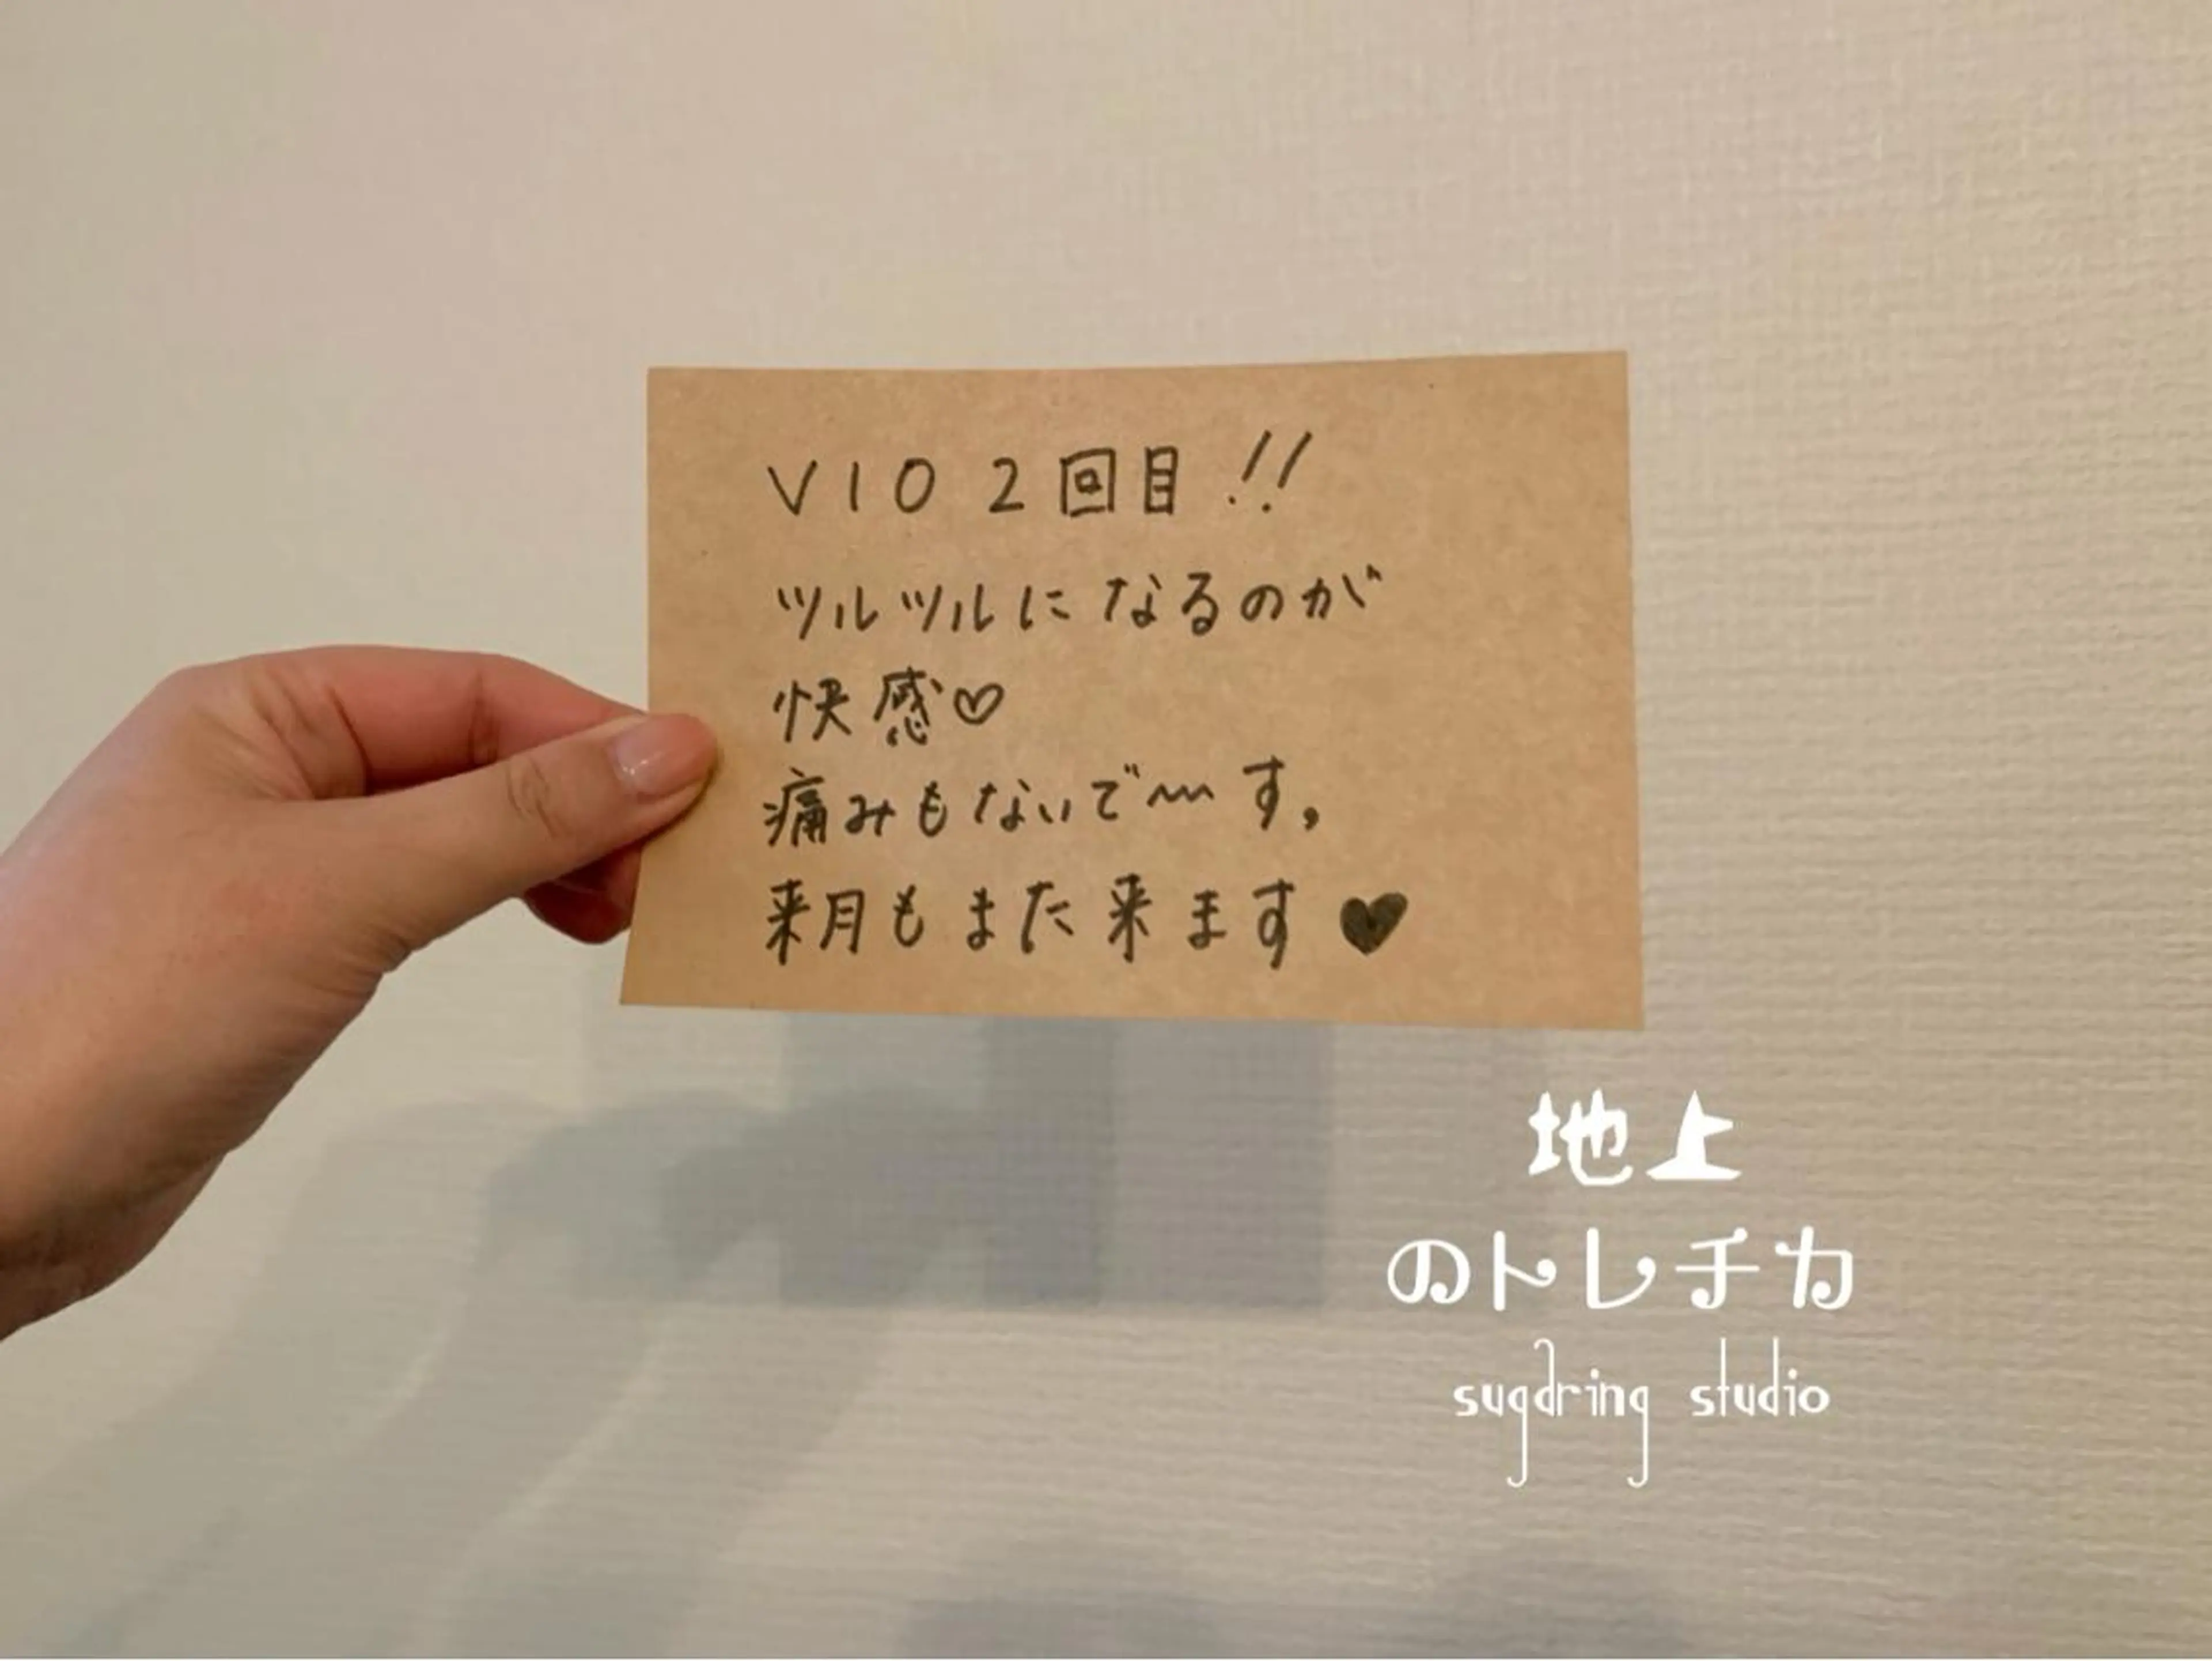 VIO 2回目!!
ツルツルになるのが
快感♡
痛みもないで〰す,
来月もまた来ます♥
地上
のトレチカ
sugaring studio